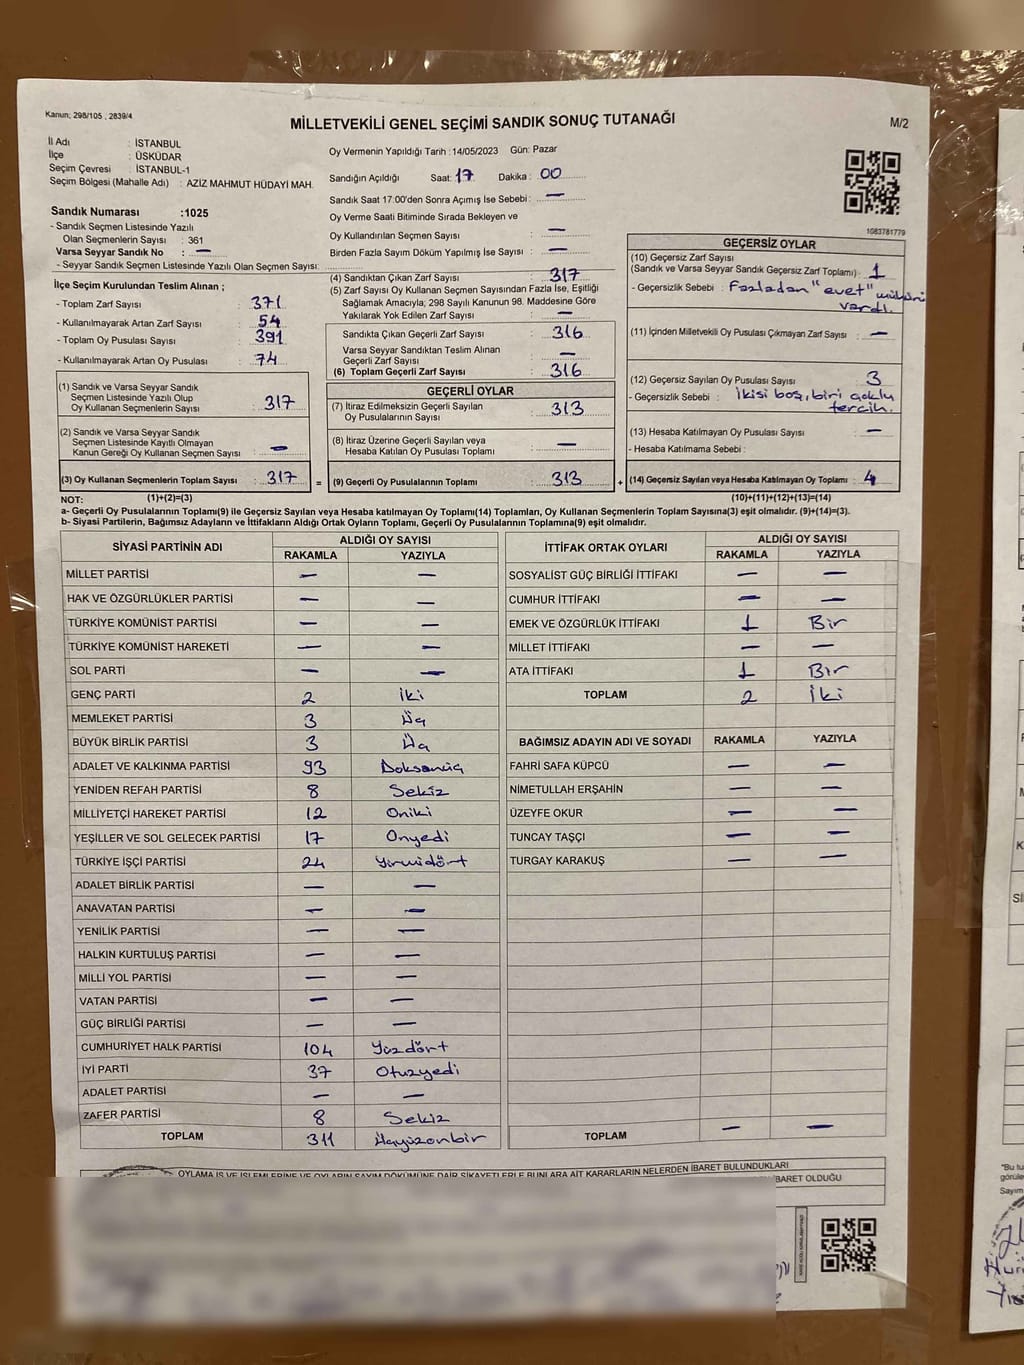 Kanun; 298/105 , 2839/4
MİLLETVEKİLİ GENEL SEÇİMİ SANDIK SONUÇ TUTANAĞI
M/2
İl Adı : İSTANBUL
İlçe : ÜSKÜDAR
Seçim Çevresi : İSTANBUL-1
Seçim Bölgesi (Mahalle Adı) : AZİZ MAHMUT HÜDAYİ MAH.
Oy Vermenin Yapıldığı Tarih : 14/05/2023 Gün: Pazar
Sandığın Açıldığı Saat: 17 Dakika : 00
Sandık Saat 17:00'den Sonra Açımış İse Sebebi: —
Oy Verme Saati Bitiminde Sırada Bekleyen ve
Oy Kullandırılan Seçmen Sayısı : —
Birden Fazla Sayım Döküm Yapılmış İse Sayısı : —
1083781779
Sandık Numarası :1025
- Sandık Seçmen Listesinde Yazılı
Olan Seçmenlerin Sayısı : 361
Varsa Seyyar Sandık No : —
- Seyyar Sandık Seçmen Listesinde Yazılı Olan Seçmen Sayısı:
İlçe Seçim Kurulundan Teslim Alınan ;
- Toplam Zarf Sayısı : 371
- Kullanılmayarak Artan Zarf Sayısı : 54
- Toplam Oy Pusulası Sayısı : 391
- Kullanılmayarak Artan Oy Pusulası : 74
(1) Sandık ve Varsa Seyyar Sandık
Seçmen Listesinde Yazılı Olup
Oy Kullanan Seçmenlerin Sayısı : 317
(2) Sandık ve Varsa Seyyar Sandık
Seçmen Listesinde Kayıtlı Olmayan
Kanun Gereği Oy Kullanan Seçmen Sayısı : —
(3) Oy Kullanan Seçmenlerin Toplam Sayısı : 317 =
(4) Sandıktan Çıkan Zarf Sayısı : 317
(5) Zarf Sayısı Oy Kullanan Seçmen Sayısından Fazla İse, Eşitliği
Sağlamak Amacıyla; 298 Sayılı Kanunun 98. Maddesine Göre
Yakılarak Yok Edilen Zarf Sayısı : —
Sandıkta Çıkan Geçerli Zarf Sayısı : 316
Varsa Seyyar Sandıktan Teslim Alınan
Geçerli Zarf Sayısı : —
(6) Toplam Geçerli Zarf Sayısı : 316
GEÇERLİ OYLAR
(7) İtiraz Edilmeksizin Geçerli Sayılan
Oy Pusulalarının Sayısı : 313
(8) İtiraz Üzerine Geçerli Sayılan veya
Hesaba Katılan Oy Pusulası Toplamı : —
(9) Geçerli Oy Pusulalarının Toplamı : 313 +
GEÇERSİZ OYLAR
(10) Geçersiz Zarf Sayısı
(Sandık ve Varsa Seyyar Sandık Geçersiz Zarf Toplamı) : 1
- Geçersizlik Sebebi : Fazladan "evet" mührü
vardı.
(11) İçinden Milletvekili Oy Pusulası Çıkmayan Zarf Sayısı : —
(12) Geçersiz Sayılan Oy Pusulası Sayısı : 3
- Geçersizlik Sebebi : İkisi boş, biri çoklu
tercih.
(13) Hesaba Katılmayan Oy Pusulası Sayısı : —
- Hesaba Katılmama Sebebi :
(14) Geçersiz Sayılan veya Hesaba Katılmayan Oy Toplamı : 4
NOT: (1)+(2)=(3) (10)+(11)+(12)+(13)=(14)
a- Geçerli Oy Pusulalarının Toplamı(9) ile Geçersiz Sayılan veya Hesaba Katılmayan Oy Toplamı(14) Toplamları, Oy Kullanan Seçmenlerin Toplam Sayısına(3) eşit olmalıdır. (9)+(14)=(3).
b- Siyasi Partilerin, Bağımsız Adayların ve İttifakların Aldığı Ortak Oyların Toplamı, Geçerli Oy Pusulalarının Toplamına(9) eşit olmalıdır.
SİYASİ PARTİNİN ADI ALDIĞI OY SAYISI
RAKAMLA YAZIYLA
MİLLET PARTİSİ — —
HAK VE ÖZGÜRLÜKLER PARTİSİ — —
TÜRKİYE KOMÜNİST PARTİSİ — —
TÜRKİYE KOMÜNİST HAREKETİ — —
SOL PARTİ — —
GENÇ PARTİ 2 İki
MEMLEKET PARTİSİ 3 Üç
BÜYÜK BİRLİK PARTİSİ 3 Üç
ADALET VE KALKINMA PARTİSİ 93 Doksanüç
YENİDEN REFAH PARTİSİ 8 Sekiz
MİLLİYETÇİ HAREKET PARTİSİ 12 Oniki
YEŞİLLER VE SOL GELECEK PARTİSİ 17 Onyedi
TÜRKİYE İŞÇİ PARTİSİ 24 Yirmidört
ADALET BİRLİK PARTİSİ — —
ANAVATAN PARTİSİ — —
YENİLİK PARTİSİ — —
HALKIN KURTULUŞ PARTİSİ — —
MİLLİ YOL PARTİSİ — —
VATAN PARTİSİ — —
GÜÇ BİRLİĞİ PARTİSİ — —
CUMHURİYET HALK PARTİSİ 104 Yüzdört
İYİ PARTİ 37 Otuzyedi
ADALET PARTİSİ — —
ZAFER PARTİSİ 8 Sekiz
TOPLAM 311 Üçyüzonbir
İTTİFAK ORTAK OYLARI ALDIĞI OY SAYISI
RAKAMLA YAZIYLA
SOSYALİST GÜÇ BİRLİĞİ İTTİFAKI — —
CUMHUR İTTİFAKI — —
EMEK VE ÖZGÜRLÜK İTTİFAKI 1 Bir
MİLLET İTTİFAKI — —
ATA İTTİFAKI 1 Bir
TOPLAM 2 İki
BAĞIMSIZ ADAYIN ADI VE SOYADI RAKAMLA YAZIYLA
FAHRİ SAFA KÜPCÜ — —
NİMETULLAH ERŞAHİN — —
ÜZEYFE OKUR — —
TUNCAY TAŞÇI — —
TURGAY KARAKUŞ — —
TOPLAM — —
OYLAMA İŞ VE İŞLEMLERİNE VE OYLARIN SAYIM DÖKÜMÜNE DAİR ŞİKAYETLERLE BUNLARA AİT KARARLARIN NELERDEN İBARET BULUNDUKLARI
İBARET OLDUĞU
"Bu tu
görüle
Sayım